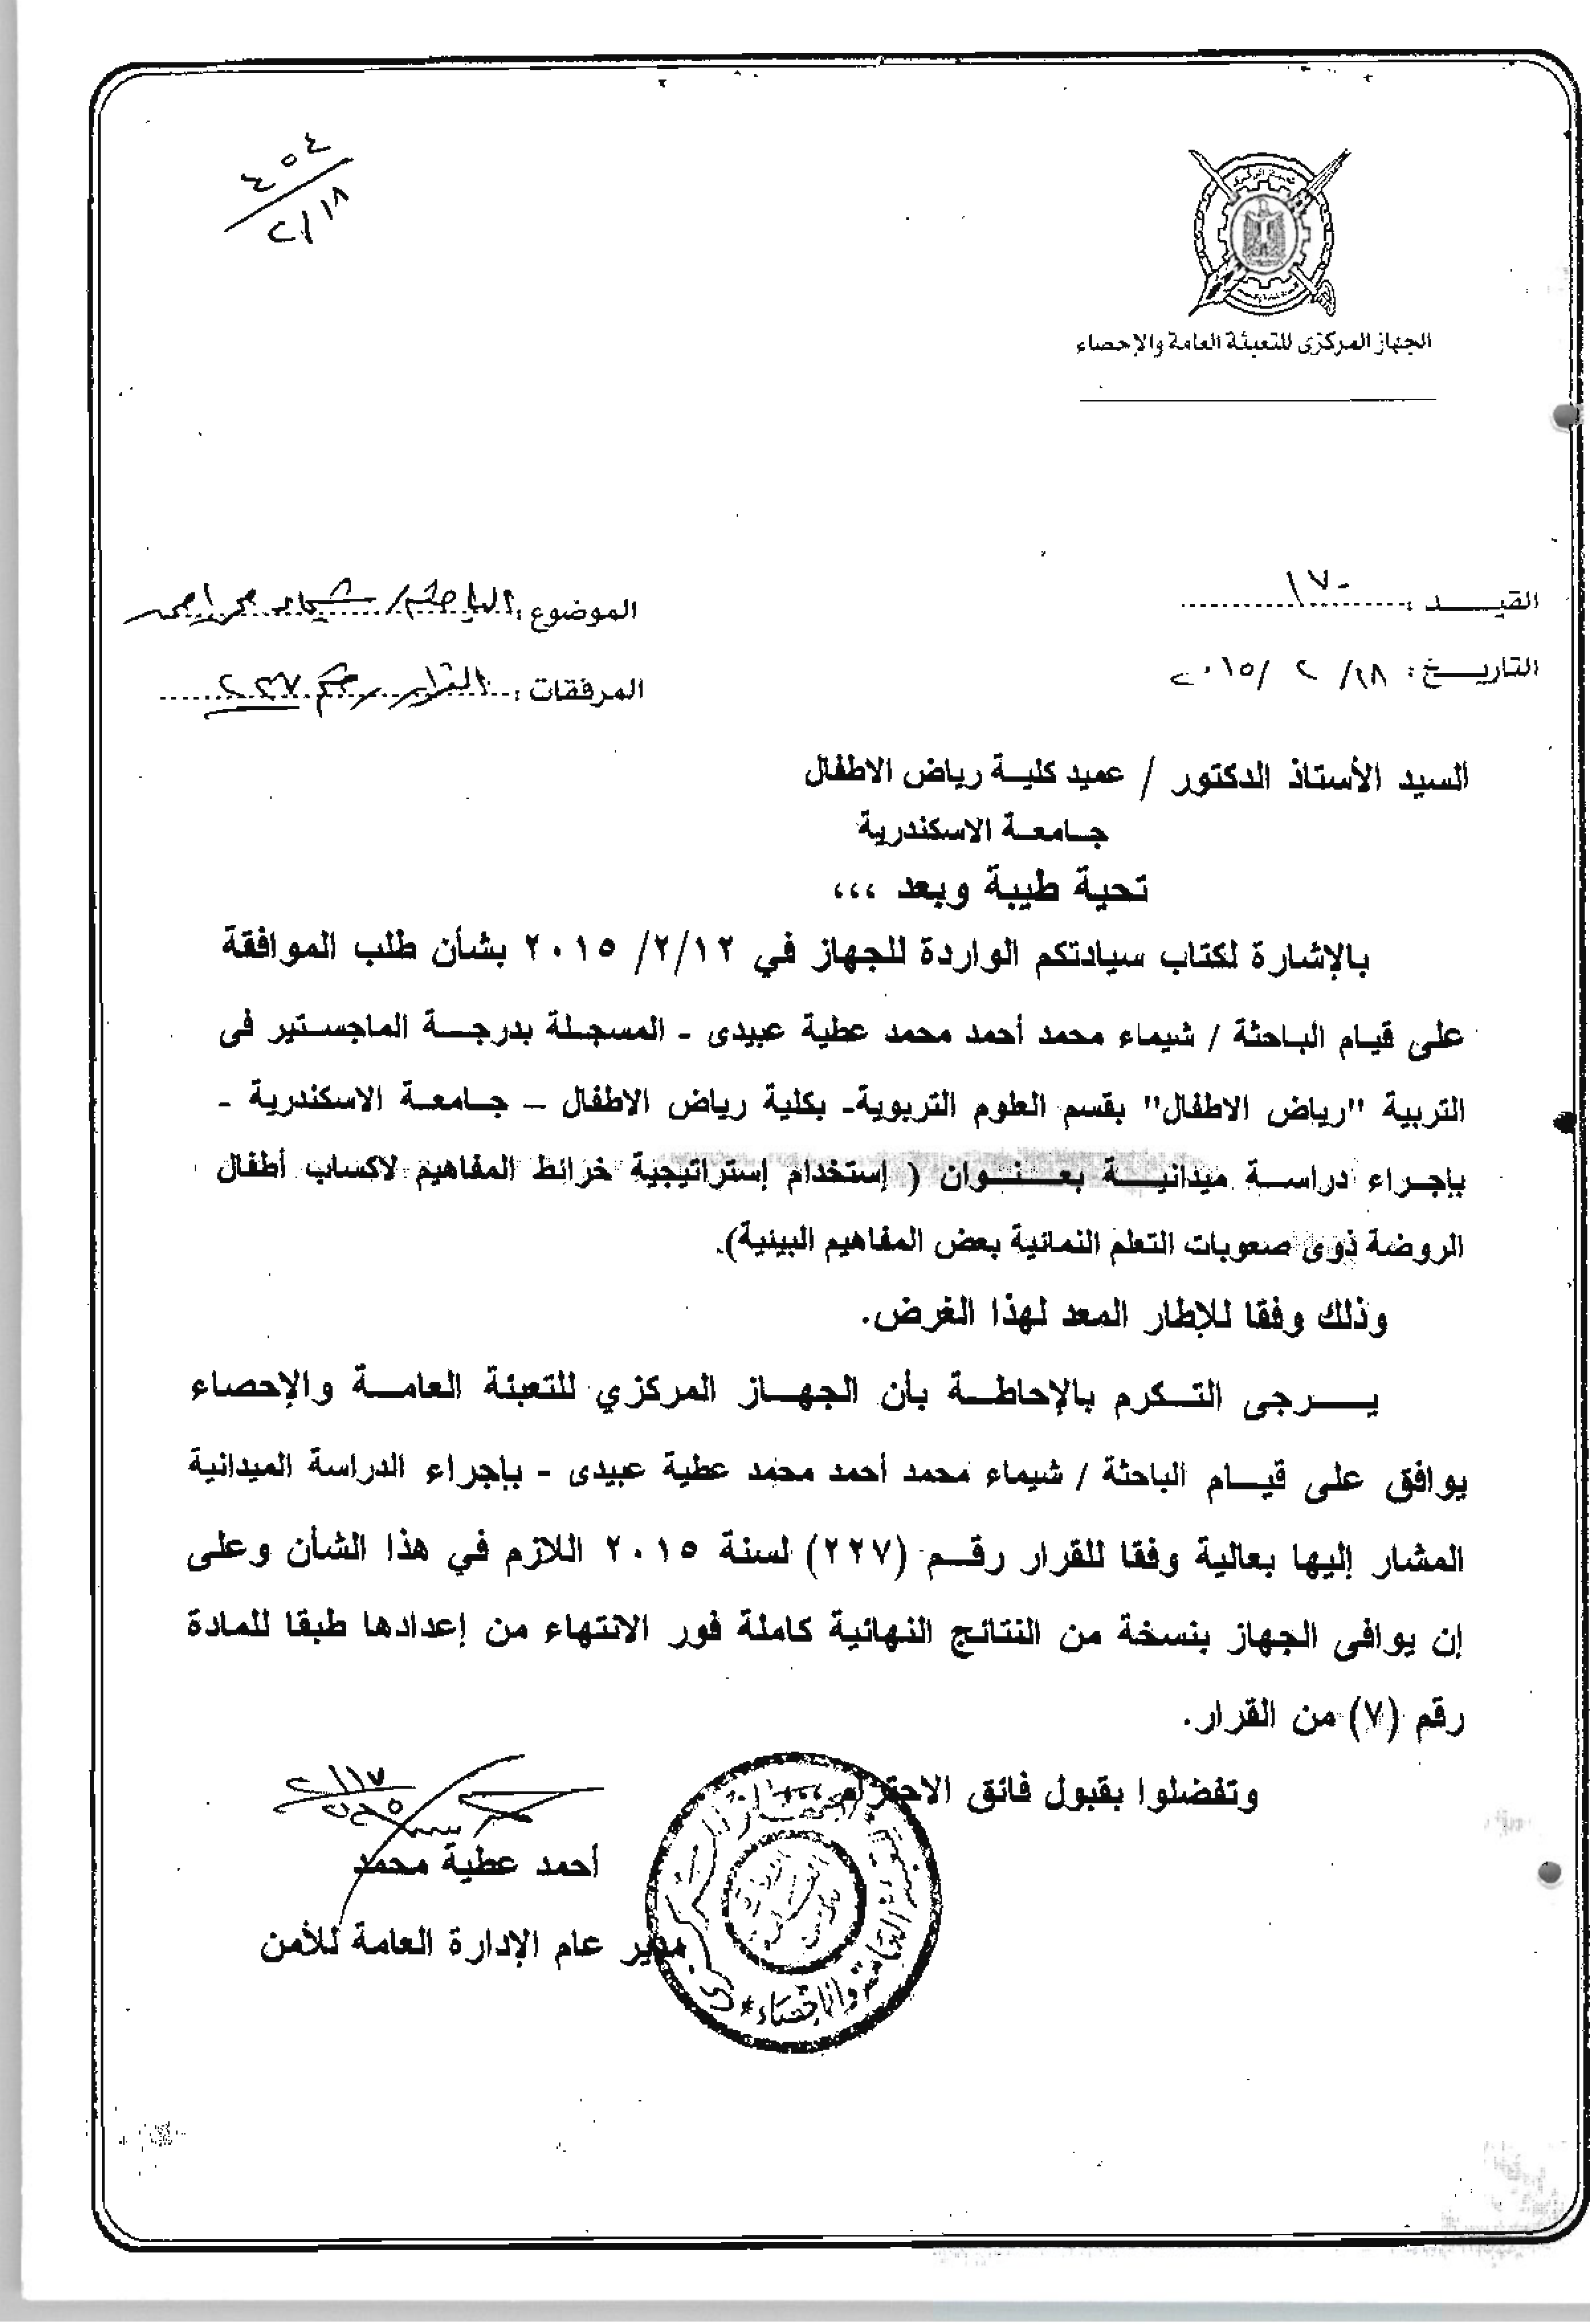 ٤٥٤
٢/١٨
الجهاز المركزى للتعبئة العامة والإحصاء
القيــــد : ١٧٠
التاريـــخ: ١٨/ ٢ /٢٠١٥
الموضوع : الباحثة/ شيماء محمد احمد
المرفقات : القرار رقم ٢٢٧
السيد الأستاذ الدكتور / عميد كليـة رياض الاطفال
جـامعـة الاسكندرية
تحية طيبة وبعد ،،،
بالإشارة لكتاب سيادتكم الواردة للجهاز في ٢/١٢/ ٢٠١٥ بشأن طلب الموافقة
على قيام الباحثة / شيماء محمد أحمد محمد عطية عبيدى - المسجلة بدرجـة الماجستير فى
التربية "رياض الاطفال" بقسم العلوم التربوية- بكلية رياض الاطفال – جـامعـة الاسكندرية -
بإجراء دراســة ميدانيــــة بعــنــوان ( إستخدام إستراتيجية خرائط المفاهيم لاكساب أطفال
الروضة ذوى صعوبات التعلم النمائية بعض المفاهيم البيئية).
وذلك وفقا للإطار المعد لهذا الغرض.
يـــرجى التـكرم بالإحاطـة بأن الجهـاز المركزي للتعبئة العامـة والإحصاء
يوافق على قيـام الباحثة / شيماء محمد أحمد محمد عطية عبيدى - بإجراء الدراسة الميدانية
المشار إليها بعالية وفقا للقرار رقـم (٢٢٧) لسنة ٢٠١٥ اللازم في هذا الشأن وعلى
إن يوافى الجهاز بنسخة من النتائج النهائية كاملة فور الانتهاء من إعدادها طبقا للمادة
رقم (٧) من القرار.
وتفضلوا بقبول فائق الاحترام
أحمد عطية محمد
مدير عام الإدارة العامة للأمن